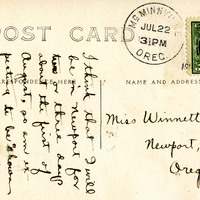 POST CARD
MCMINNVILLE
JUL 22
3 30 PM
OREG.
RRESPONDENCE HERE
NAME AND ADDRESS
I think that I will
be in Newport for
two or three days
about the first of
August, so am ex
pecting to be shown
Miss Winnett
Newport,
Oreg